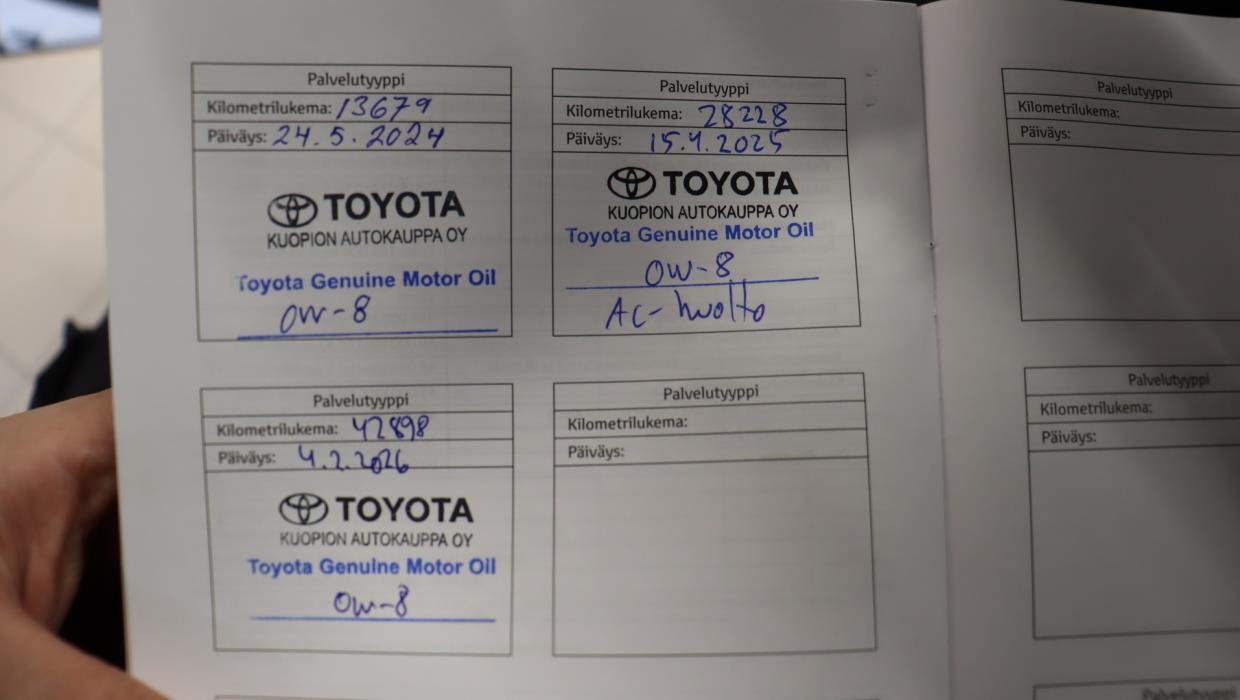 Palvelutyyppi
Kilometrilukema: 13679
Päiväys: 24.5.2024
TOYOTA
KUOPION AUTOKAUPPA OY
Toyota Genuine Motor Oil
0W-8
Palvelutyyppi
Kilometrilukema: 28228
Päiväys: 15.4.2025
TOYOTA
KUOPION AUTOKAUPPA OY
Toyota Genuine Motor Oil
0W-8
AC-huolto
Palvelutyyppi
Kilometrilukema:
Päiväys:
Palvelutyyppi
Kilometrilukema: 42898
Päiväys: 4.2.2026
TOYOTA
KUOPION AUTOKAUPPA OY
Toyota Genuine Motor Oil
0W-8
Palvelutyyppi
Kilometrilukema:
Päiväys:
Palvelutyyppi
Kilometrilukema:
Päiväys:
Palvelutyyppi